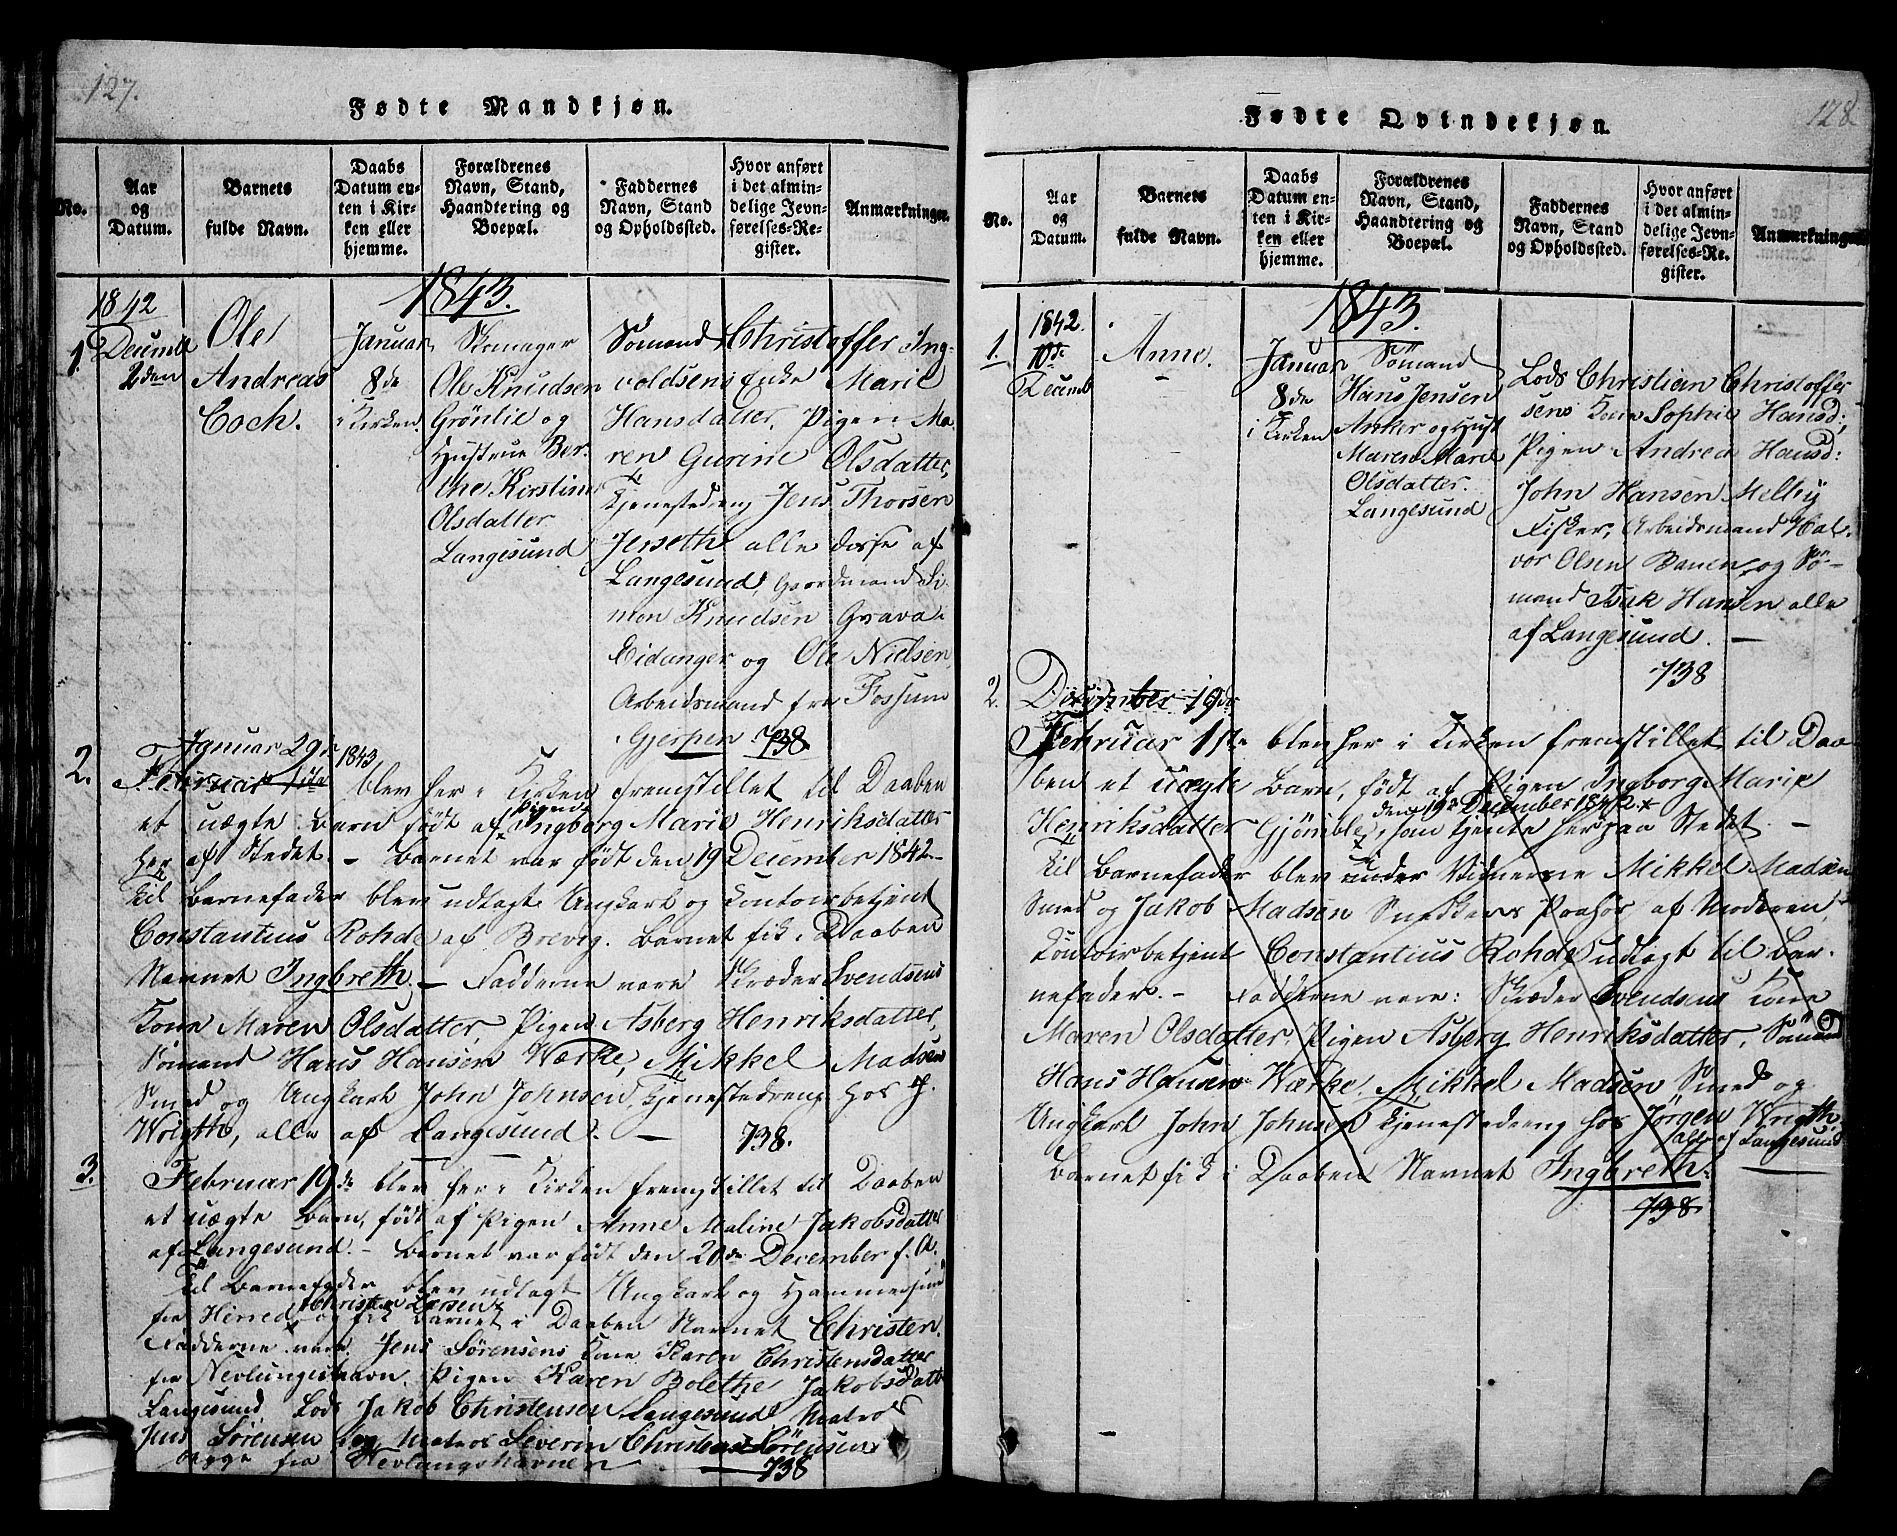 127.
Fødte Mandkjøn.
No.
Aar og Datum.
Barnets fulde Navn.
Daabs Datum enten i Kirken eller hjemme.
Forældrenes Navn, Stand, Haandtering og Boepæl.
Faddernes Navn, Stand og Opholdssted.
Hvor anført i det almindelige Jevnførelses-Register.
Anmærkninger.
1843.
1842
1.
Decembr
2den
Ole
Andreas
Coch.
Januar
8de
i Kirken.
Skomager
Ole Knudsen
Grönlie og
Hustrue Ber-
the Kirstine
Olsdatter
Langesund
Sømand Christoffer Ing-
voldsens Enke Marie
Hansdatter, Pigen Ma-
ren Gurine Olsdatter,
Tjenestedreng Jens Thorsen
Jerseth alle disse af
Langesund, Gaardmand Si-
mon Knudsen Grava
Eidanger og Ole Nielsen
Arbeidsmand fra Fossum
Gjerpen 738.
2.
Januar 29de 1843
Februar 1ste blev her i Kirken fremstillet til Daaben
et uægte Barn født af Pigen Ingborg Marie Henriksdatter
her af Stedet. – Barnet var født den 19 December 1842 –
Til Barnefader blev udlagt Ungkarl og Contoirbetjent
Constantius Rohde af Brevig. Barnet fik i Daaben
Navnet Ingbreth. – Fadderne vare Skræder Svendsens
Kone Maren Olsdatter, Pigen Asberg Henriksdatter,
Sømand Hans Hansen Værke, Mikkel Madsen
Smed og Ungkarl John Johnsen, Tjenestedreng hos J.
Wrigth, alle af Langesund. – 738.
3.
Februar 19de blev her i Kirken fremstillet til Daaben
et uægte Barn, født af Pigen Anne Maline Jakobsdatter
af Langesund. – Barnet var født den 20de December f. A.
Til Barnefader blev udlagt Ungkarl og
Christen Larsen
fra og fik Barnet i Daaben Navnet Christen.
Fadderne vare Jens Sörensens Kone Karen Christensdatter
fra Nevlungshavn, Pigen Karen Bolethe Jakobsdatt
Langesund Lods Jakob Christensen Langesund, Matros
Jens Sörensen og Matros Severin Christens Sörensen
begge fra Nevlungshavnen – 738
128.
Fødte Qvindekjøn.
No.
Aar og Datum.
Barnets fulde Navn.
Daabs Datum enten i Kirken eller hjemme.
Forældrenes Navn, Stand, Haandtering og Boepæl.
Faddernes Navn, Stand og Opholdssted.
Hvor anført i det almindelige Jevnførelses-Register.
Anmærkninger
1843.
1.
1842.
10de
Decemb
Anne.
Januar
8de
i Kirken
Sömand
Hans Jensen
Anker og Hust
Maren Marie
Olsdatter.
Langesund
Lods Christian Christoffer
sens Kone Sophie Hansd:,
Pigen Andrea Hansd:
John Hansen Melby
Fisker, Arbeidsmand Hal-
vor Olsen Banen og Sö-
mand Isak Hansen alle
af Langesund. –
738
2.
December 19de
Februar 1ste blev her i Kirken fremstillet til Daa
ben et uægte Barn, født af Pigen Ingborg Marie
den 19de December 1842
Henriksdatter Gjömble, som tjente her paa Stedet. –
Til Barnefader blev under Vidnerne Mikkel Madsen
Smed og Jakob Madsen Snedkers Paahör af Moderen
Contoirbetjent Constantius Rohde udlagt til Bar-
nefader. – Fadderne vare: Skræder Svendsens Kone
Maren Olsdatter, Pigen Asberg Henriksdatter, Sömand
Hans Hansen Værke, Mikkel Madsen Smed og
Ungkarl John Johnsen Tjenestedreng hos Jörgen Wrigth,
alle af Langesund
Barnet fik i Daaben Navnet Ingbreth.
738.